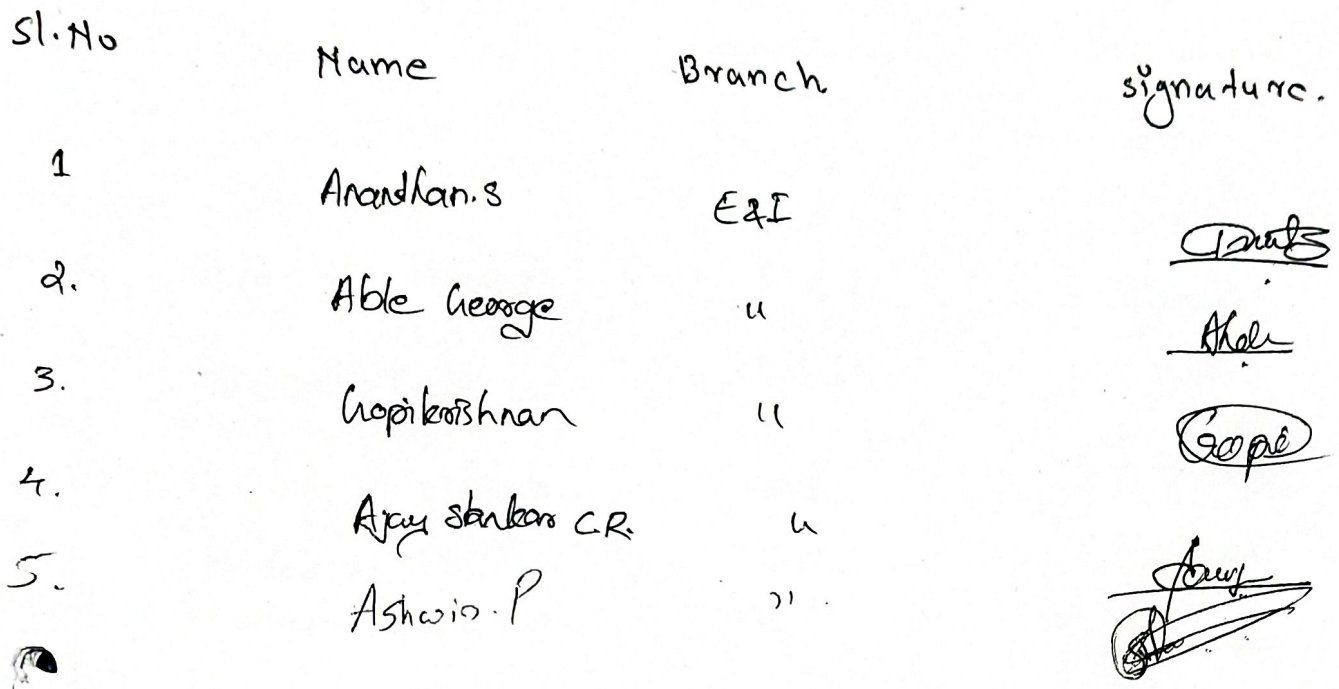 Sl.No Name Branch signature.
1 Anandhan.S E&I
2. Able George "
3. Gopikrishnan " Gopi
4. Ajay Shankar C.R. "
5. Ashwin.P "